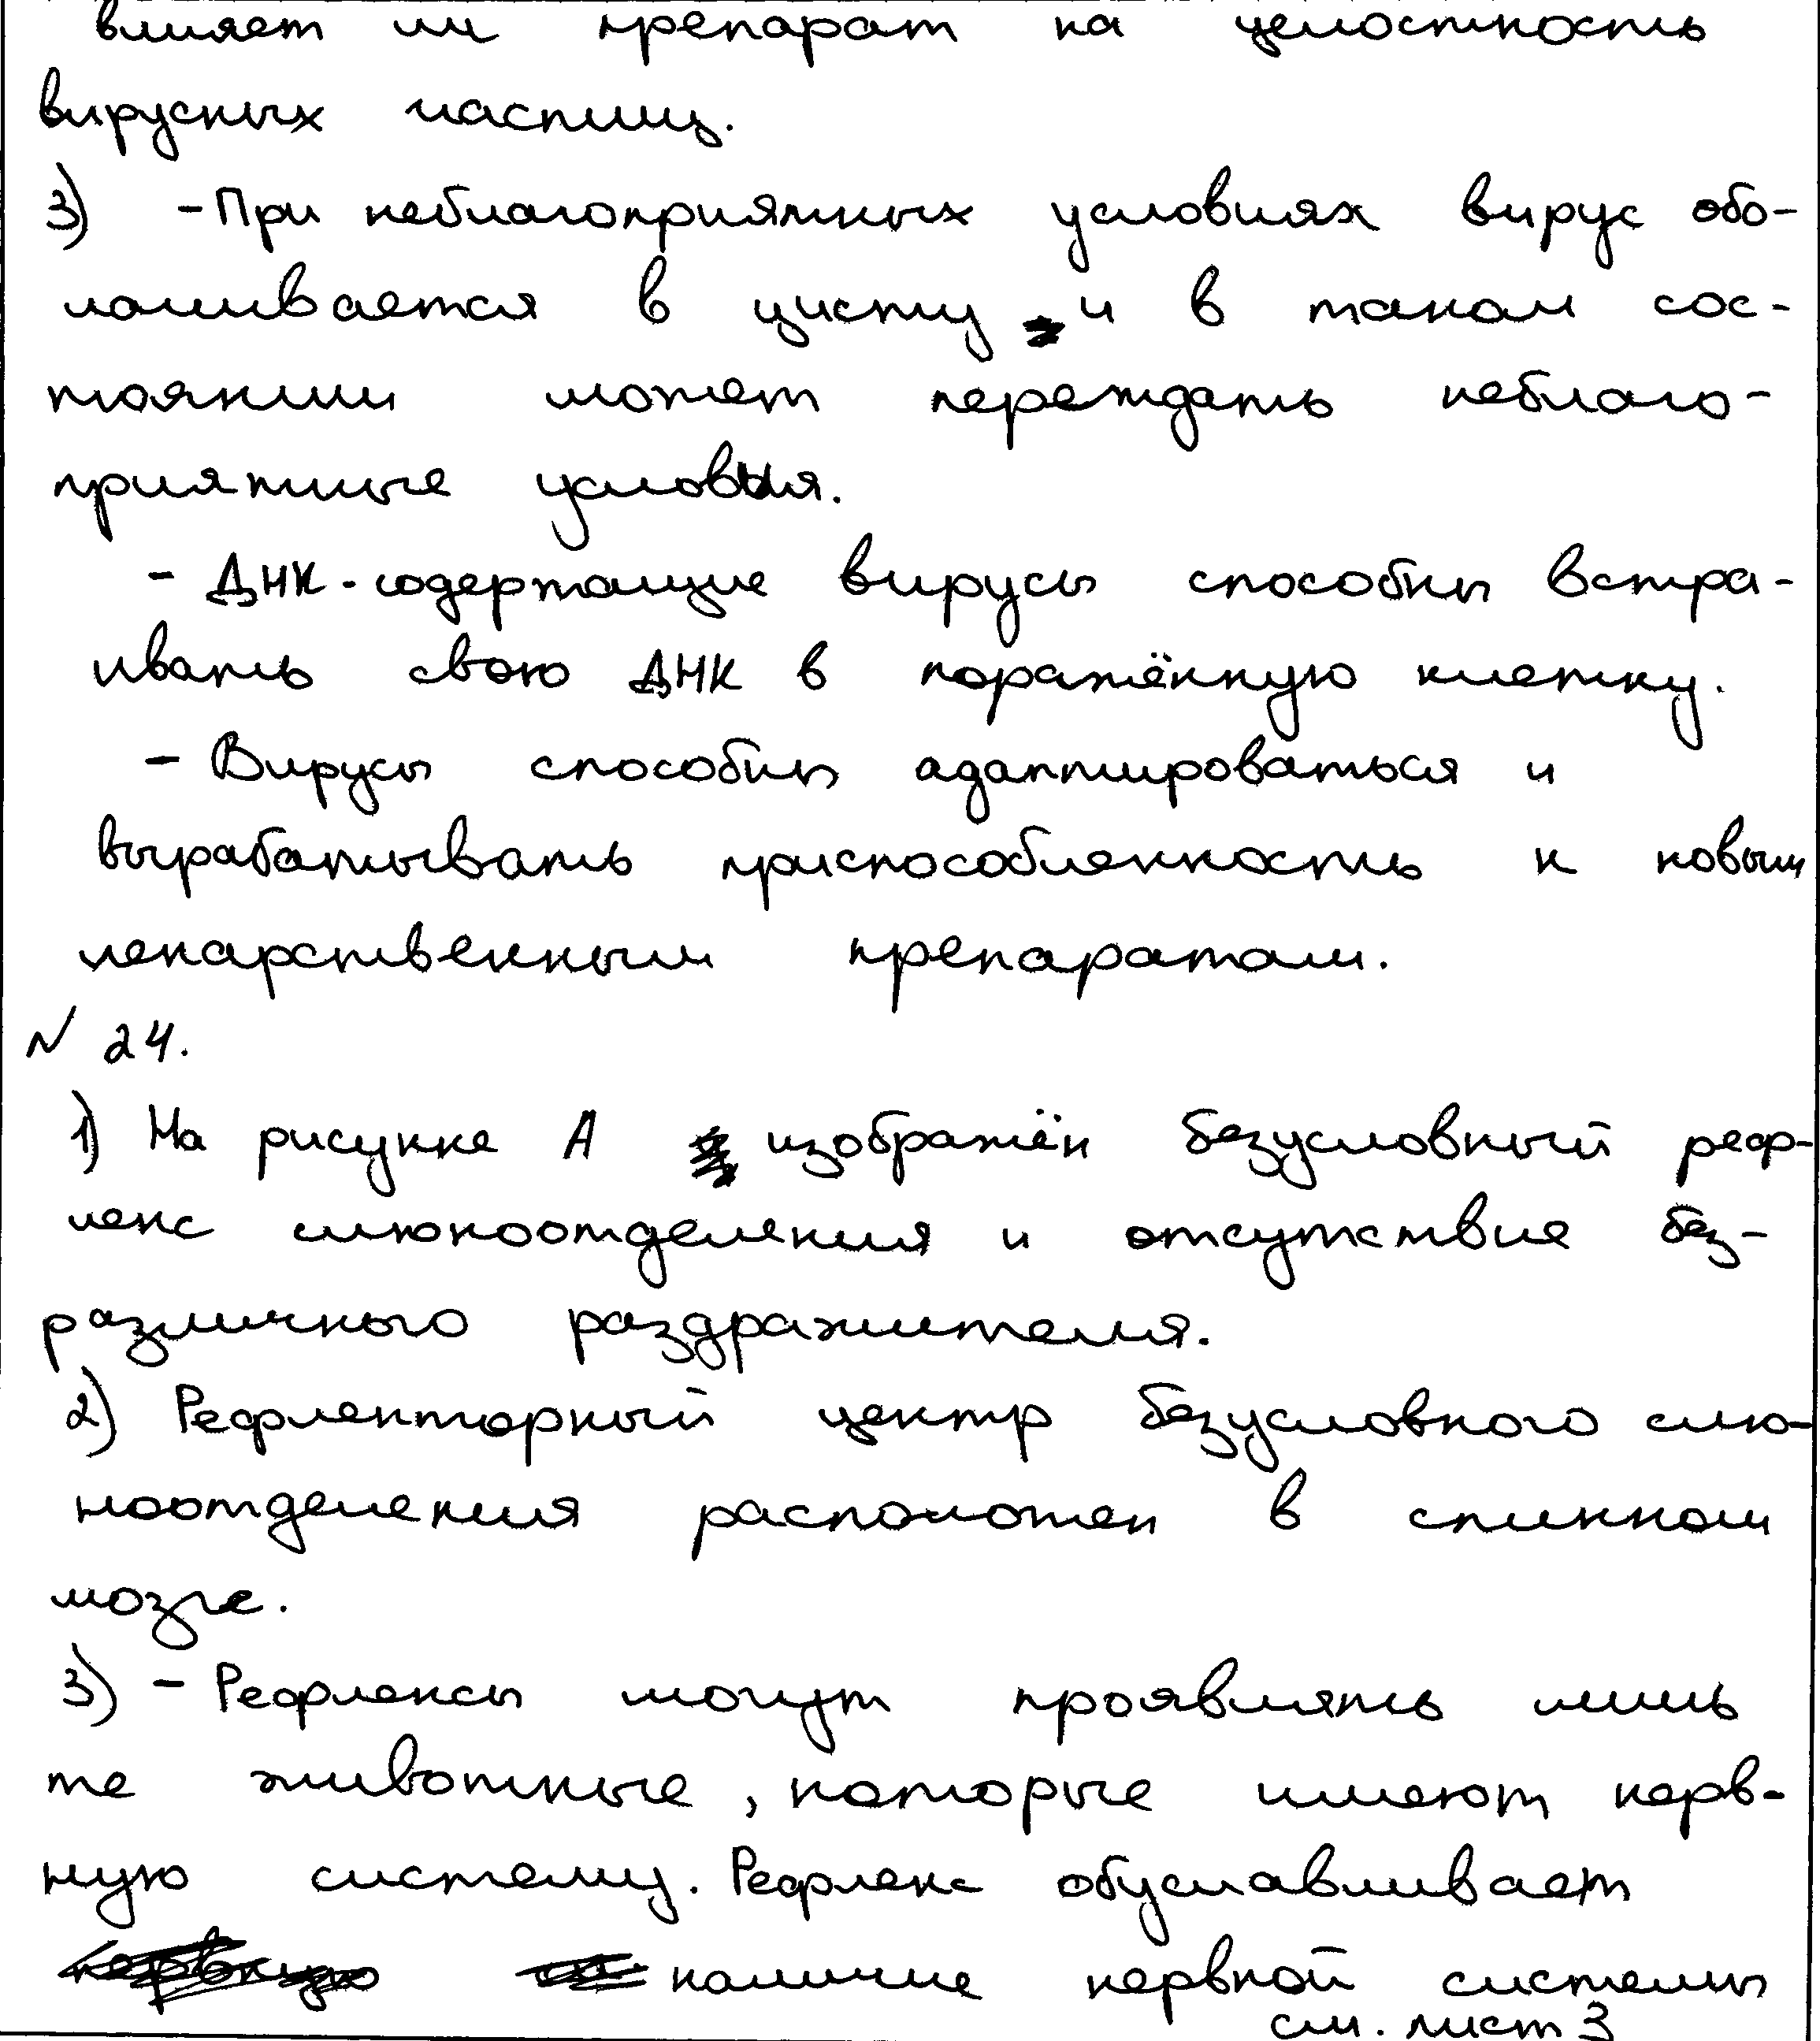 влияет ли препарат на целостность
вирусных частиц.
3) - При неблагоприятных условиях вирус обо-
лачивается в цисту и в таком сос-
тоянии может переждать неблаго-
приятные условия.
- ДНК-содержащие вирусы способны встра-
ивать свою ДНК в поражённую клетку.
- Вирусы способны адаптироваться и
вырабатывать приспособленность к новым
лекарственным препаратам.
№ 24.
1) На рисунке А изображён безусловный реф-
лекс слюноотделения и отсутствие без-
различного раздражителя.
2) Рефлекторный центр безусловного слю-
ноотделения расположен в спинном
мозге.
3) - Рефлексы могут проявлять лишь
те животные, которые имеют нерв-
ную систему. Рефлекс обуславливает
наличие нервной системы
см. лист 3